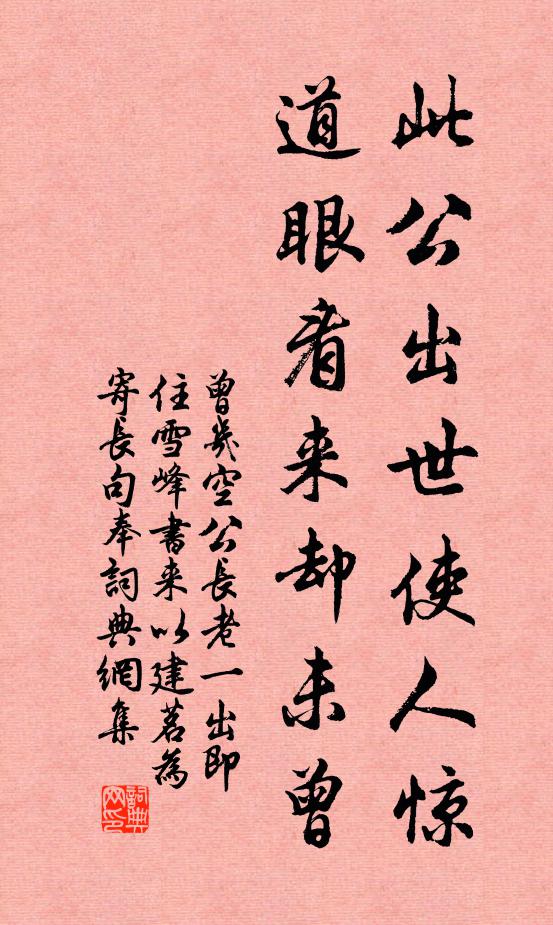 此公出世使人惊
道眼看来却未曾
曾几空公长老一出即
住雪峰书来以建茗为
寄长句奉词典网集
词典
网印